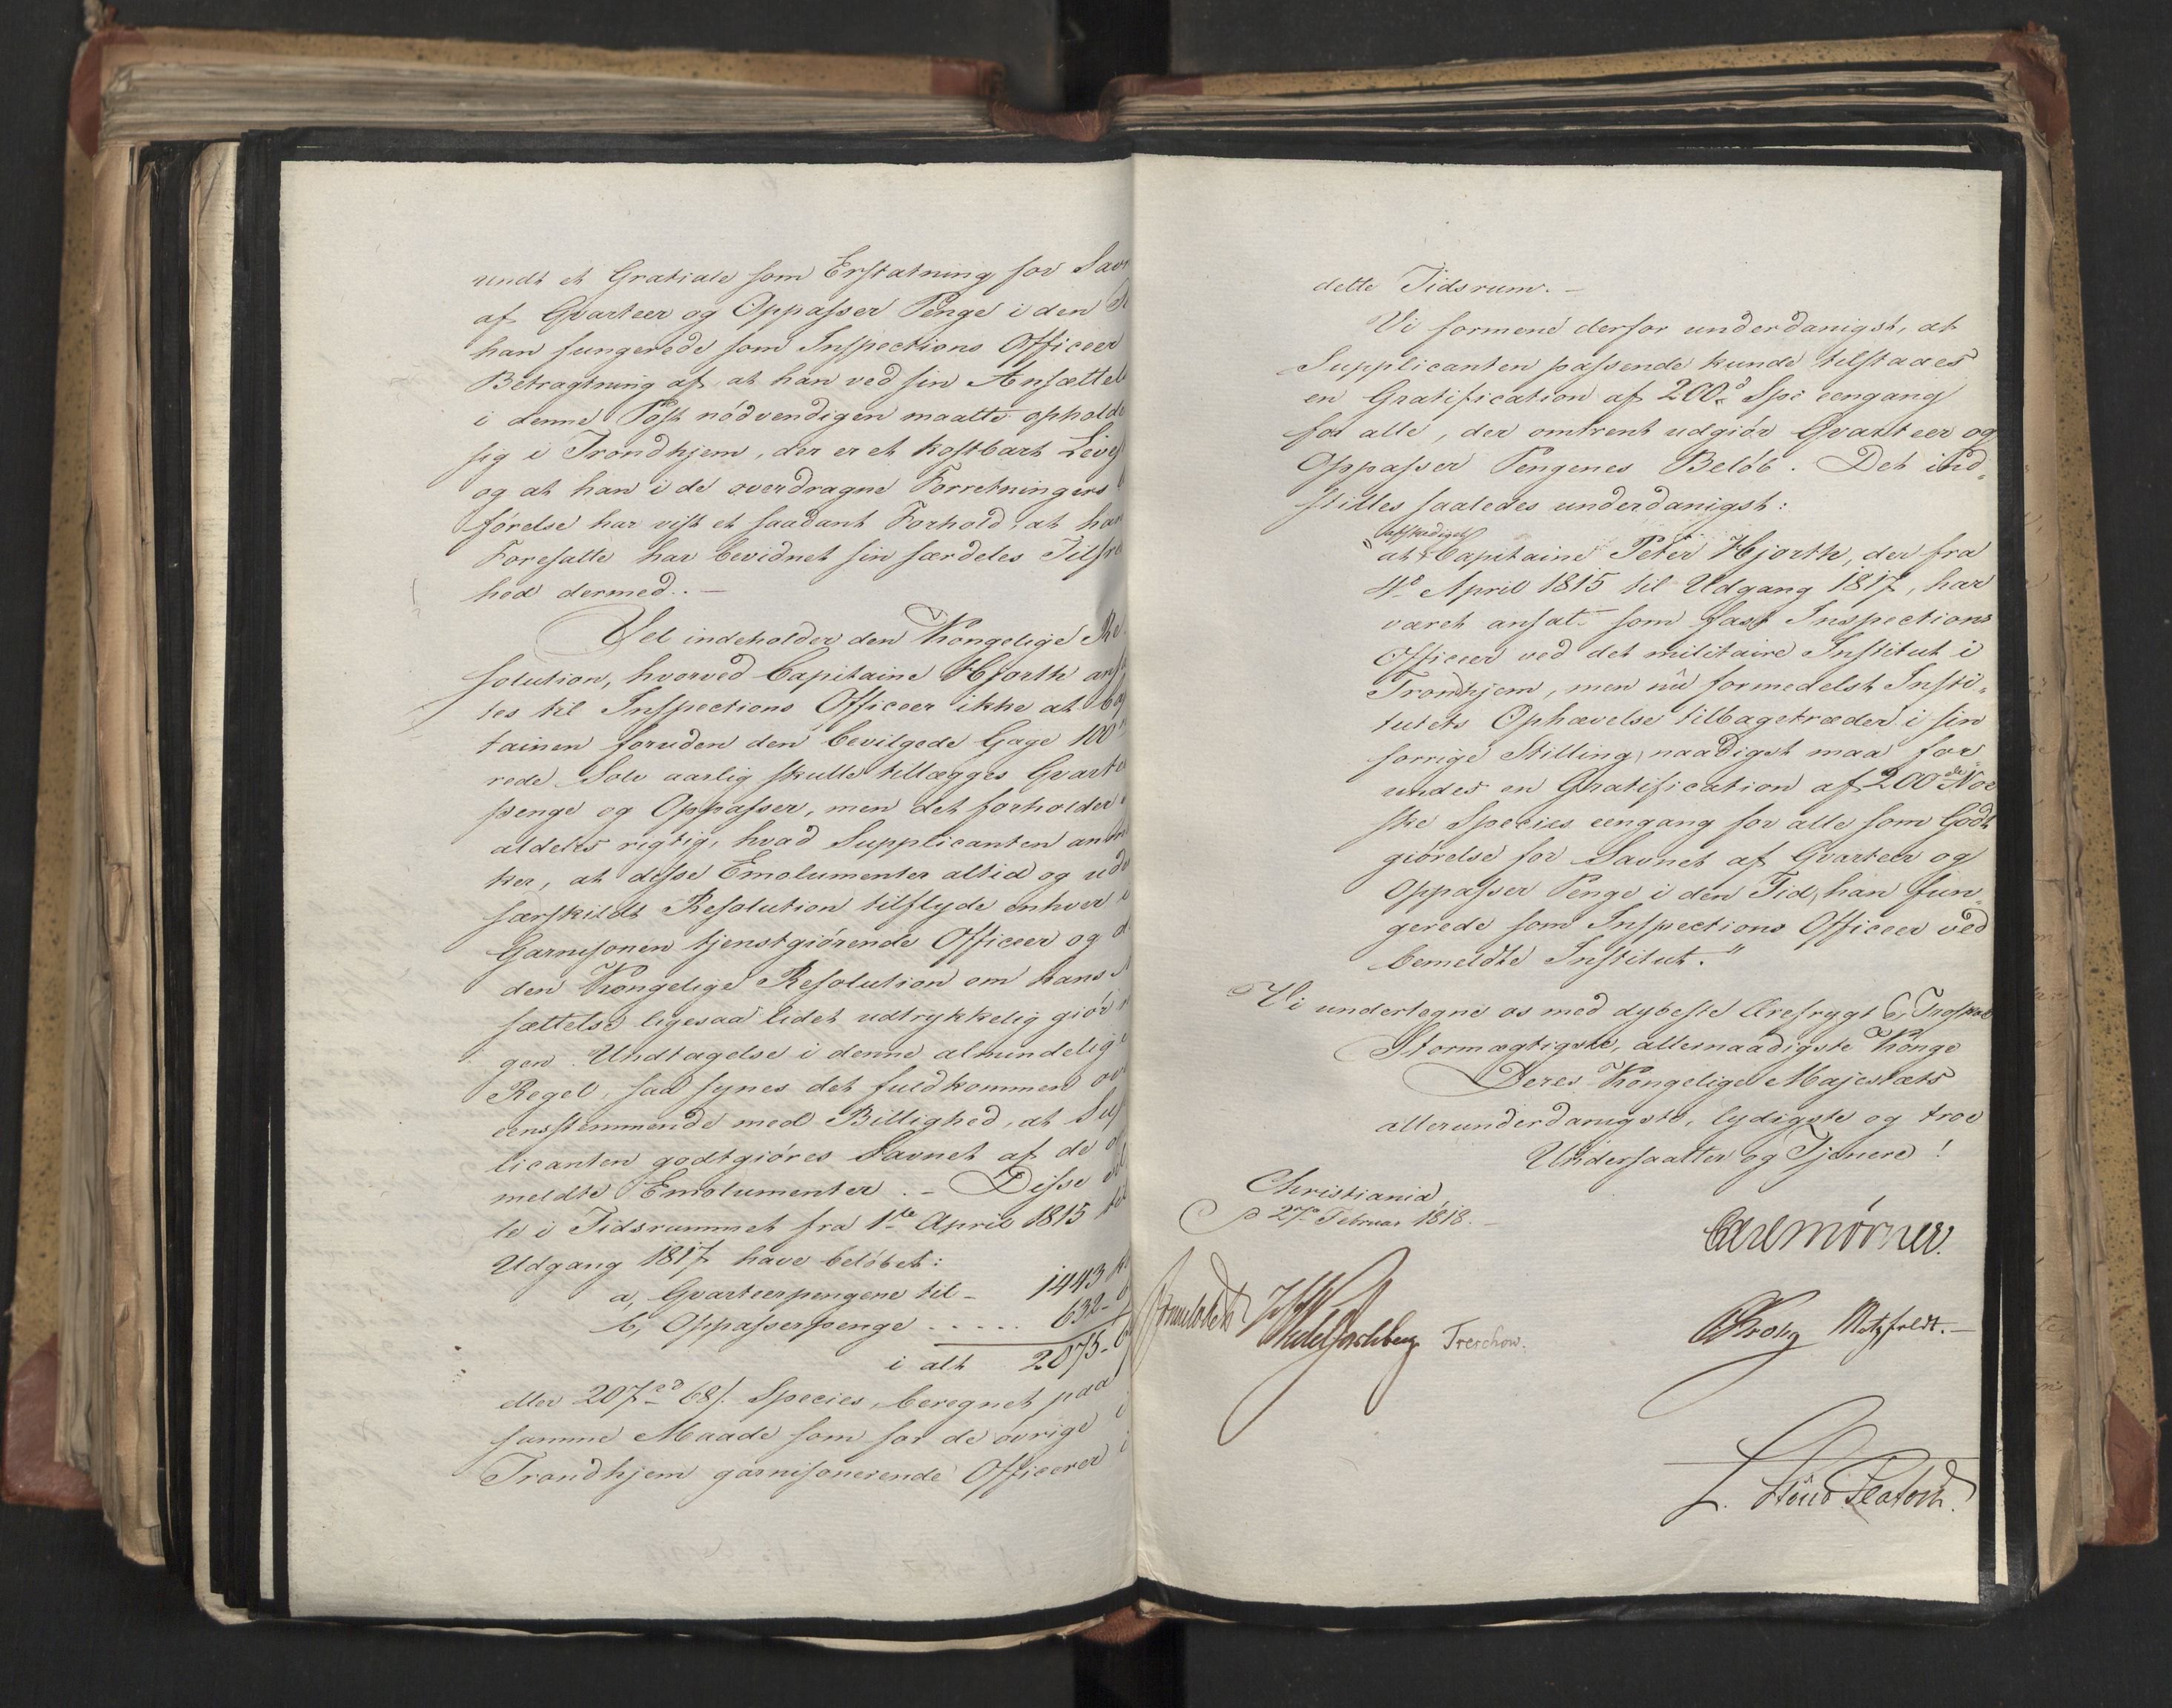 undt et Gratiale som Erstatning for Sav
af Gvarteer og Oppasser Penge i den
han fungerede som Inspections Officeer
Betragtning af at han ved sin Ansættel
i denne Post nödvendigen maatte ophold
sig i Trondhjem, der er et kostbart Leve
og at han i de overdragne Forretningers
förelse har viist et saadant Forhold, at han
Foresatte har bevidnet sin særdeles Tilfre
hed dermed. -
Vel indeholder den Kongelige Re-
solution, hvorved Capitaine Hjorth ansa
tes til Inspections Officeer ikke at Cap
tainen foruden den bevilgede Gage 100
rede Sölv aarlig skulle tillægges Gvarte
penge og Oppasser, men det forholder
aldeles rigtig, hvad Supplicanten anmær
ker, at disse Emolumenter altid og ude
særskildt Resolution tilflyde enhver i
Garnisonen tjenstgiörende Officeer og d
den Kongelige Resolution om hans
sættelse ligesaa lidet udtrykkelig giör
gen Undtagelse i denne almindelige
Regel, saa synes det fuldkommen ov
eensstemmende med Billighed, at Sup
licanten godtgiöres Savnet af de o
meldte Emolumenter. - Disse
le i Tidsrummet fra 1ste April 1815 til
Udgang 1817 have belöbet:
a, Gvarteerpengene til - 1443
b, Oppasserpenge . . . . . 632-
i alt 2075-
eller 207 68 s. Species, beregnet paa
samme Maade som for de övrige i
Trondhjem garnisonerende Officerer i
dette Tidsrum. -
Vi formene derfor underdanigst, at
Supplicanten passende kunde tilstaaes
en Gratification af 200 Spe eengang
for alle, der omtrent udgiör Gvarteer og
Oppasser Pengenes Belöb. Det ind-
stilles saaledes underdanigst:
afskediget
"at Capitaine Peter Hjorth, der fra
4de April 1815 til Udgang 1817, har
været ansat som fast Inspections
Officeer ved det militaire Institut i
Tronhjem, men nu formedelst Insti-
tutets Ophævelse tilbagetræder i sin
forrige Stilling, naadigst maa for-
undes en Gratification af 200 Nor
ske Species eengang for alle som Godt
giörelse for Savnet af Gvarteer og
Oppasser Penge i den Tid, han fun-
gerede som Inspections Officeer ved
bemeldte Institut."
Vi undertegne os med dybeste Ærefrygt
Stormægtigste, allernaadigste Konge
Deres Kongelige Majestæts
allerunderdanigste, lydigste og troe
Undersaatter og Tjenere!
Christiania,
27 Februar 1818.
Carl Mörner.
Sommerhielm Wedel Jarlsberg Treschow. Krohg Motzfeldt. -
L. Stoud Platou.